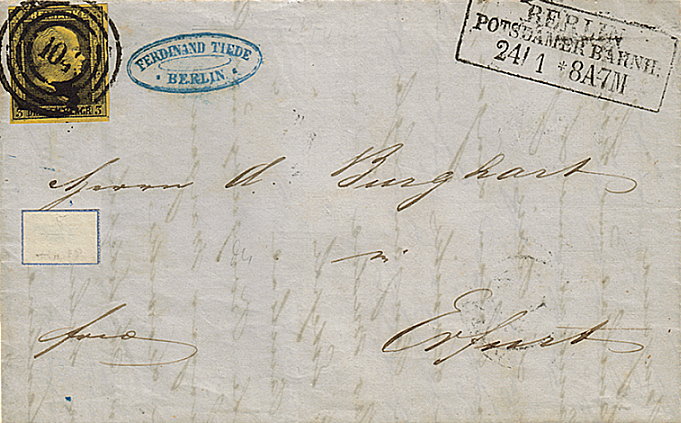 104
3 3
FERDINAND TIEDE
BERLIN
BERLIN
POTSDAMER BAHNH.
24/1 *8A7M
Herrn A. Burghart
in
Erfurt
frco